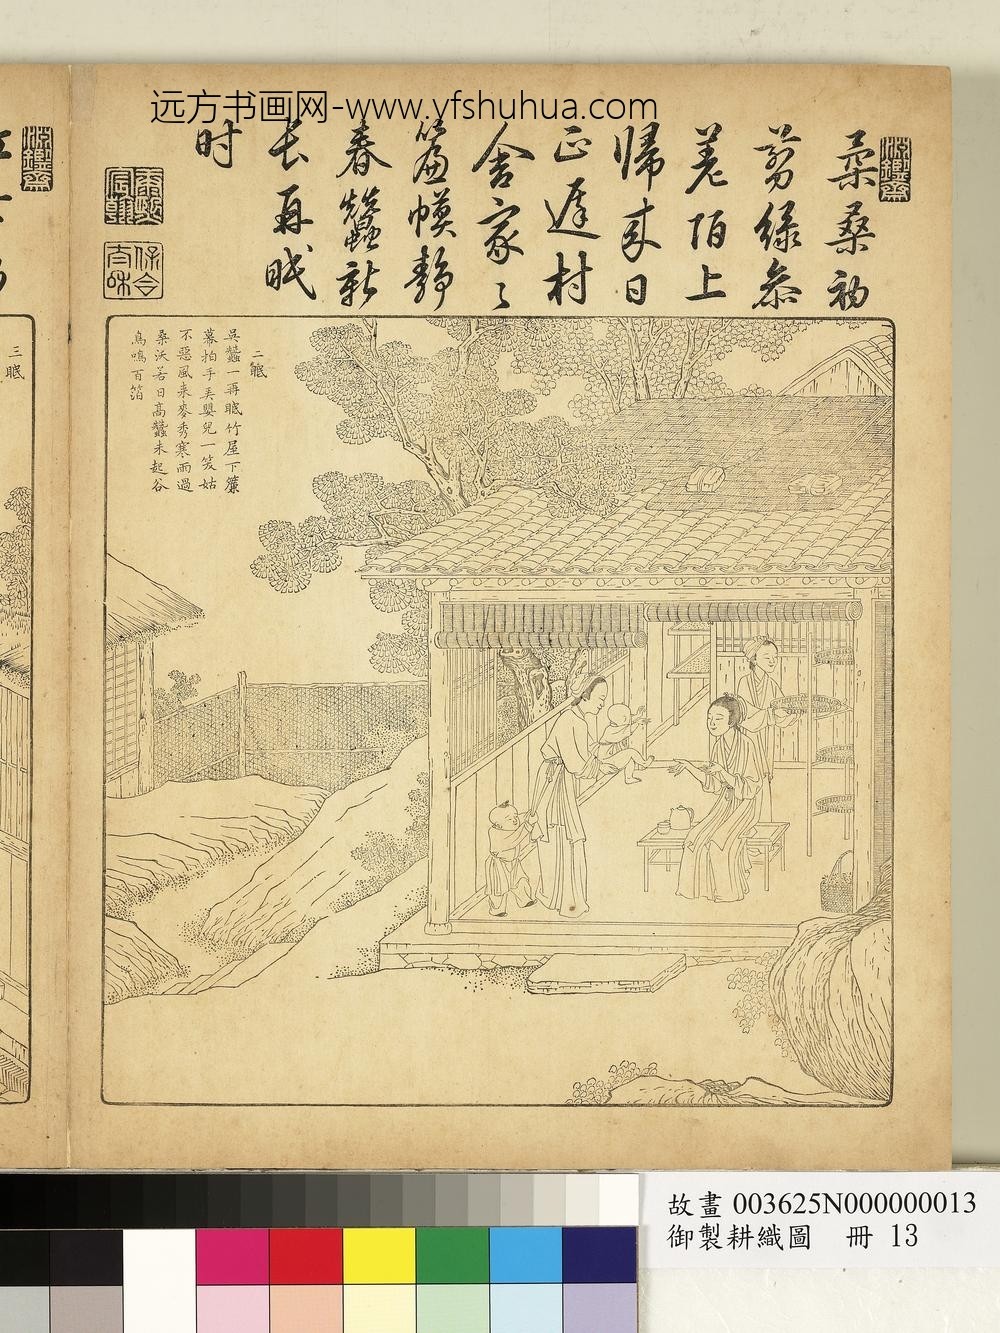 远方书画网-www.yfshuhua.com
柔桑初
剪绿参
差陌上
歸来日
正遅村
舍家〻
簾幙静
春蠶新
长再眠
时
二眠
吳蠶一再眠竹屋下簾
幕拍手弄嬰兒一笑姑
不惡風来麥秀寒雨過
桑沃若日高蠶未起谷
鳥鳴百箔
三眠
故畫 003625N000000013
御製耕織圖 冊 13